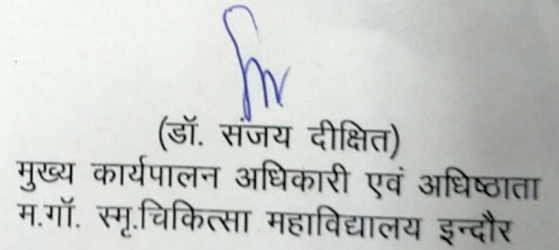 (डॉ. संजय दीक्षित)
मुख्य कार्यपालन अधिकारी एवं अधिष्ठाता
म.गॉ. स्मृ.चिकित्सा महाविद्यालय इन्दौर